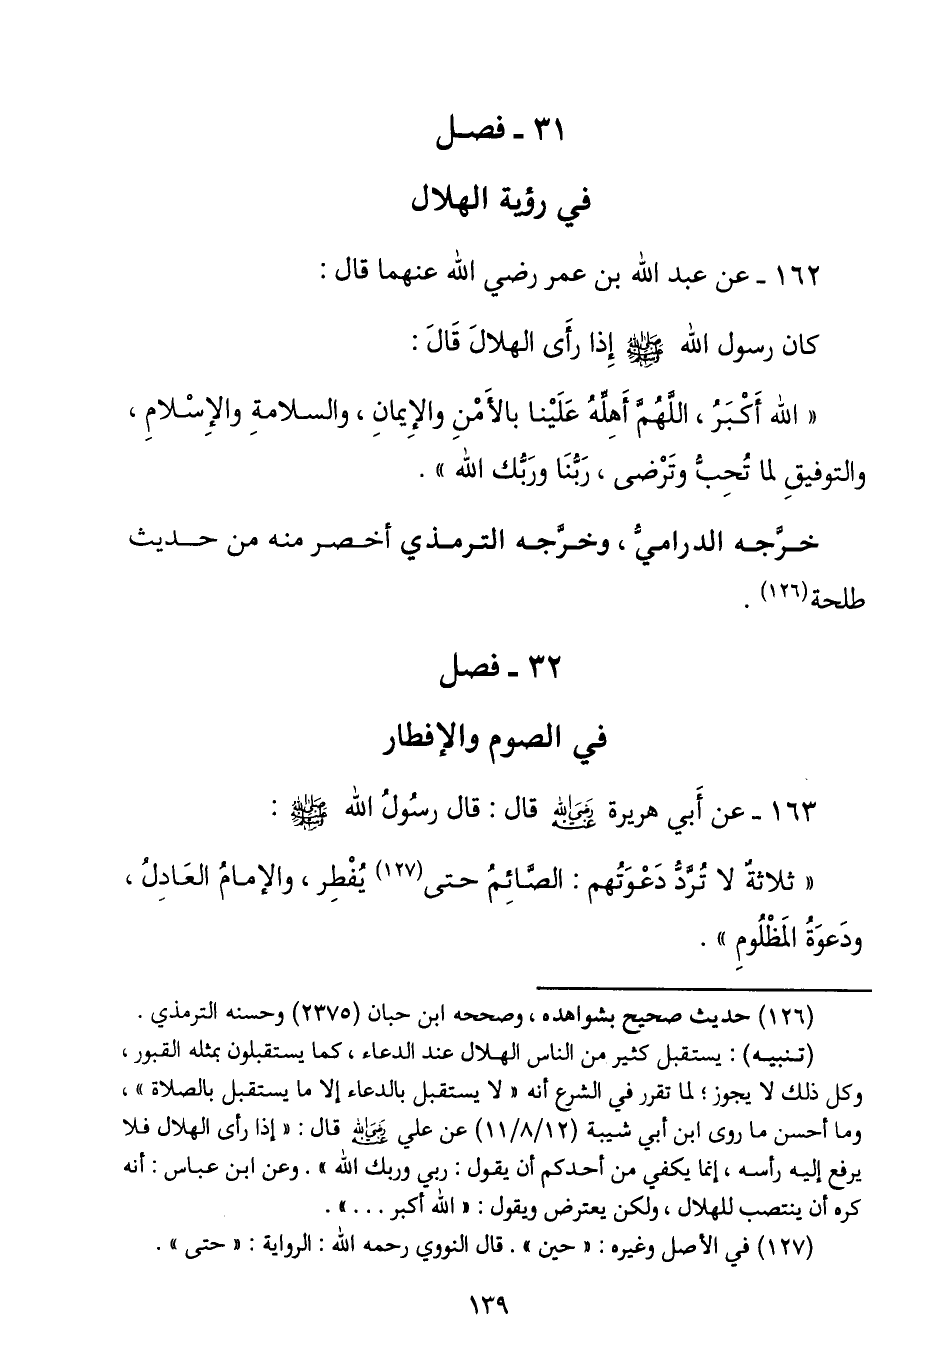 ٣١ - فصل
في رؤية الهلال
١٦٢ - عن عبد الله بن عمر رضي الله عنهما قال :
كان رسول الله ﷺ إِذا رأَى الهلالَ قَالَ :
« الله أَكْبَرُ ، اللَّهُمَّ أَهِلَّهُ عَلَيْنا بالأَمْنِ والإِيمانِ ، والسلامةِ والإِسْلامِ ،
والتوفيقِ لما تُحِبُّ وتَرْضى ، رَبُّنَا ورَبُّك الله » .
خرَّجه الدراميُّ ، وخرَّجه الترمذي أخصر منه من حديث
طلحة(١٢٦) .
٣٢ - فصل
في الصوم والإفطار
١٦٣ - عن أَبي هريرة رضي الله عنه قال : قال رسُولُ الله ﷺ :
« ثلاثةٌ لا تُرَدُّ دَعْوَتُهم : الصَّائِمُ حتى(١٢٧) يُفْطِر ، والإمامُ العَادِلُ ،
ودَعوَةُ المَظْلُومِ » .
(١٢٦) حديث صحيح بشواهده ، وصححه ابن حبان (٢٣٧٥) وحسنه الترمذي .
(تنبيه) : يستقبل كثير من الناس الهلال عند الدعاء ، كما يستقبلون بمثله القبور ،
وكل ذلك لا يجوز ؛ لما تقرر في الشرع أنه « لا يستقبل بالدعاء إلا ما يستقبل بالصلاة » ،
وما أحسن ما روى ابن أبي شيبة (١١/٨/١٢) عن علي رضي الله عنه قال : « إذا رأى الهلال فلا
يرفع إليه رأسه ، إنما يكفي من أحدكم أن يقول : ربي وربك الله » . وعن ابن عباس : أنه
كره أن ينتصب للهلال ، ولكن يعترض ويقول : « الله أكبر ... » .
(١٢٧) في الأصل وغيره : « حين » . قال النووي رحمه الله : الرواية : « حتى » .
١٣٩